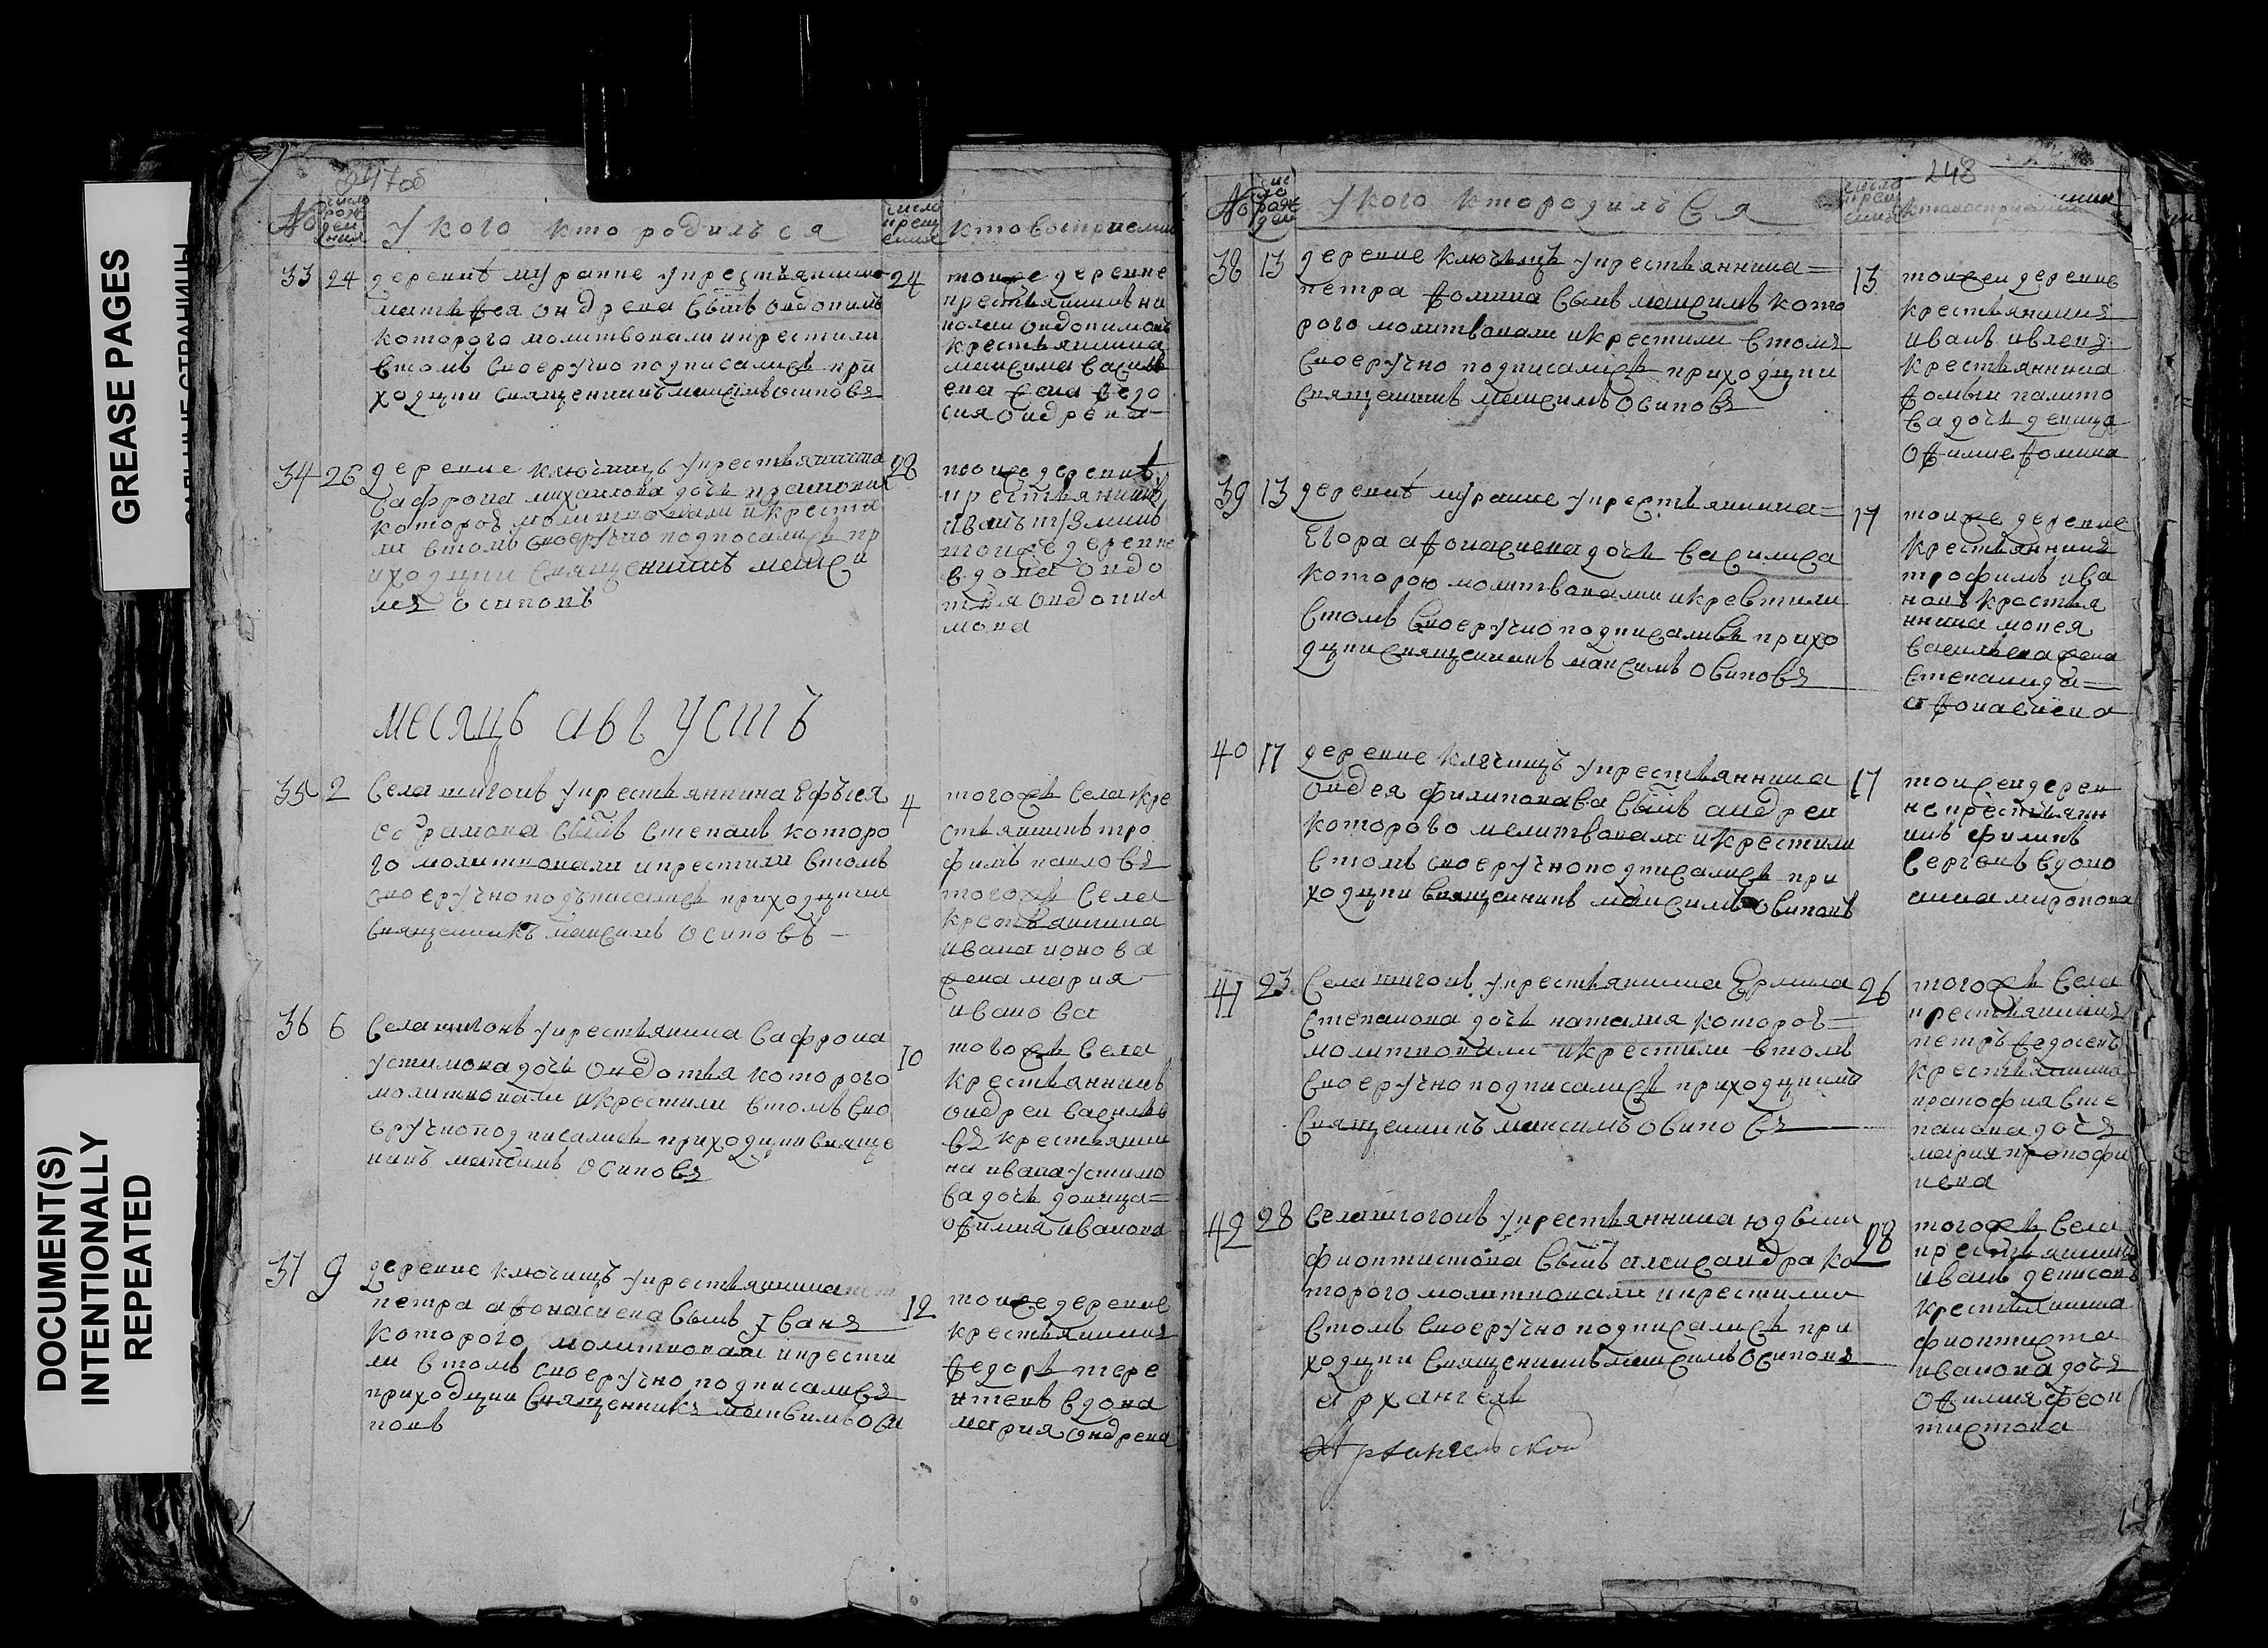 GREASE PAGES
DOCUMENT(S)
INTENTIONALLY
REPEATED
247об
No
число
рож
ден
ния
у кого кто родилъся
число
крещ
ения
кто восприемни
33 24 деревнѣ муравке у крестьянина
матьфея ондрева сынъ овдокимъ
которого молитвовали и крестили
втомъ своеручно подписалисъ при
ходцки священникъ максимъ осиповъ
24
тоиже деревне
крестьянинъ ни
колаи овдокимовъ
крестьянина
максима василь
ева жена федо
сия ондрева
34 26 деревне ключищъ у крестьянина
сафрона михаилова дочь
котороѣ молитвовали и крести
ли втомъ своеручно подпосалисъ пр
иходцки священникъ макси
мъ осиповъ
28
тоиже деревнѣ
крестьянинъ
иванъ
тоиже деревне
вдова овдо
тья овдоки
мова
месяцъ августъ
35 2 села шигонъ у крестьянина
сынъ степанъ которо
го молитвовали и крестили втомъ
своеручно подъписалисъ приходцкии
священникъ максимъ осиповъ
4
тогожъ села кре
стьянинъ тро
фимъ павловъ
тогожъ села
крестьянина
ивана ионова
жена мария
иванова
36 6 села шигонъ у крестьянина сафрона
устимова дочь овдотья которого
молитвовали и крестили втомъ сво
еручно подписалисъ приходцки свяще
никъ максимъ осиповъ
10
тогожъ села
крестьянинъ
ондреи василье
въ крестьянин
на ивана устимо
ва дочь
офимия иванова
37 9 деревне ключищъ у крестьянина
петра афонасиева сынъ Iванъ
которого молитвовали и крести
ли втомъ своеручно подписалисъ
приходцки священникъ максимъ оси
повъ
12
тоиже деревне
крестьянинъ
федоръ тере
нтевъ вдова
мария ондрева
248
No
чис
ло
рож
ден
у кого кто родилъся
число
крещ
ения
кто восприемни
38 13 деревне ключищъ у крестьянина
петра фомина сынъ максимъ кото
рого молитвовали и крестили втомъ
своеручно подписалисъ приходцки
священникъ максимъ осиповъ
13
тоижеи деревне
крестьянинъ
иванъ ивлевъ
крестьянина
фомы
ва дочь девица
офимие фомина
39 13 деревнѣ муравке у крестьянина
Егора афонасиева дочь василиса
которою молитвовали и крестили
втомъ своеручно подписалисъ прихо
дцки священникъ максимъ осиповъ
17
тоиже деревне
крестьянинъ
трофимъ ива
новъ крастья
нина мокея
васильева жена
степанида
афонасиева
40 17 деревне ключищъ у крестьянина
сынъ андреи
которого молитвовали и крестили
втомъ своеручно подписалисъ при
ходцки священникъ максимъ осиповъ
17
тоижеи дерев
не крестьянин
инъ филипъ
сергевъ вдова
миронова
41 23 села шигонъ у крестьянина Ермила
степанова дочь наталия котороѣ
молитвовали и крестили втомъ
своеручно подписалисъ приходцкии
священникъ максимъ осиповъ
26
тогожъ села
крестьянинъ
петръ федосевъ
крестьянина
пракофия сте
панова дочъ
мария прокофи
иева
42 28 села шигонъ у крестьянина
фиоктистова сынъ александра ко
торого молитвовали и крестили
втомъ своеручно подписалисъ при
ходцки священникъ максимъ осиповъ
28
тогожъ села
крестьянинъ
иванъ денисовъ
крестьянина
фиоктиста
иванова дочъ
офимия феок
тистова
архангелъ
Архангельской